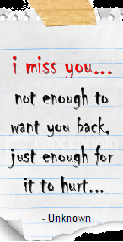 i miss you...
not enough to
want you back,
just enough for
it to hurt...
- Unknown